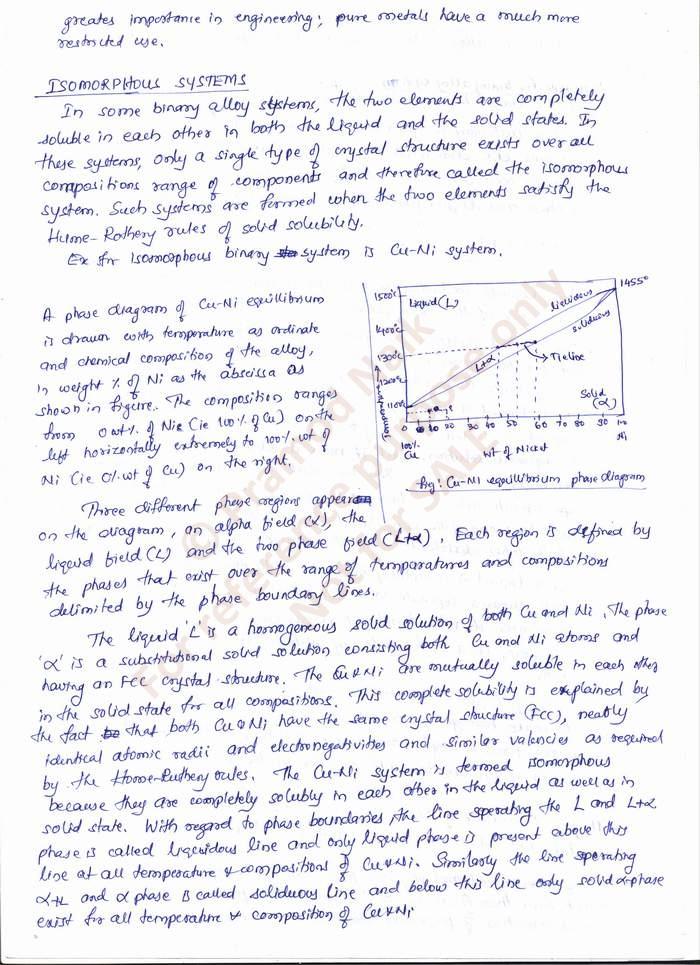 greates importance in engineering; pure metals have a much more
restricted use.
ISOMORPHOUS SYSTEMS
In some binary alloy systems, the two elements are completely
soluble in each other in both the liquid and the solid states. In
these systems, only a single type of crystal structure exists over all
compositions range of components and therefore called the isomorphous
system. Such systems are formed when the two elements satisfy the
Hume-Rothery rules of solid solubility.
Ex for isomorphous binary system is Cu-Ni system.
A phase diagram of Cu-Ni equillibrium
is drawn with temperature as ordinate
and chemical composition of the alloy,
in weight % of Ni as the abscissa as
shown in figure. The composition ranges
from 0 wt% of Nie (ie 100% of Cu) on the
left horizontally extremely to 100% wt of
Ni (ie 0% wt of Cu) on the right.
1500°C
1400°C
1300°C
1200°C
1100°C
Temperature
Liquid (L)
liquidous
soliduous
1455°
L+α
Tieline
Solid
(α)
0 10 20 30 40 50 60 70 80 90 100
100%
Cu
Wt of Nickel
Ni
Fig: Cu-Ni equillibrium phase diagram
Three different phase regions appear
on the diagram, an alpha field (α), the
liquid field (L) and the two phase field (L+α). Each region is defined by
the phases that exist over the range of temparatures and compositions
delimited by the phase boundary lines.
The liquid 'L' is a homogeneous solid solution of both Cu and Ni. The phase
'α' is a substitutional solid solution consisting both Cu and Ni atoms and
having an FCC crystal structure. The Cu & Ni are mutually soluble in each other
in the solid state for all compositions. This complete solubility is explained by
the fact that both Cu & Ni have the same crystal structure (FCC), neatly
identical atomic radii and electronegativities and similar valencies as required
by the Home-Ruthery rules. The Cu-Ni system is termed isomorphous
because they are completely solubly in each other in the liquid as well as in
solid state. With regard to phase boundaries, the line seperating the L and L+α
phase is called liquidous line and only liquid phase is present above this
line at all temperature & compositions of Cu & Ni. Similarly the line seperating
α+L and α phase is called soliduous line and below this line only solid α-phase
exist for all temperature & composition of Cu & Ni
© Pramod Naik
For reference purpose only
Not for SALE